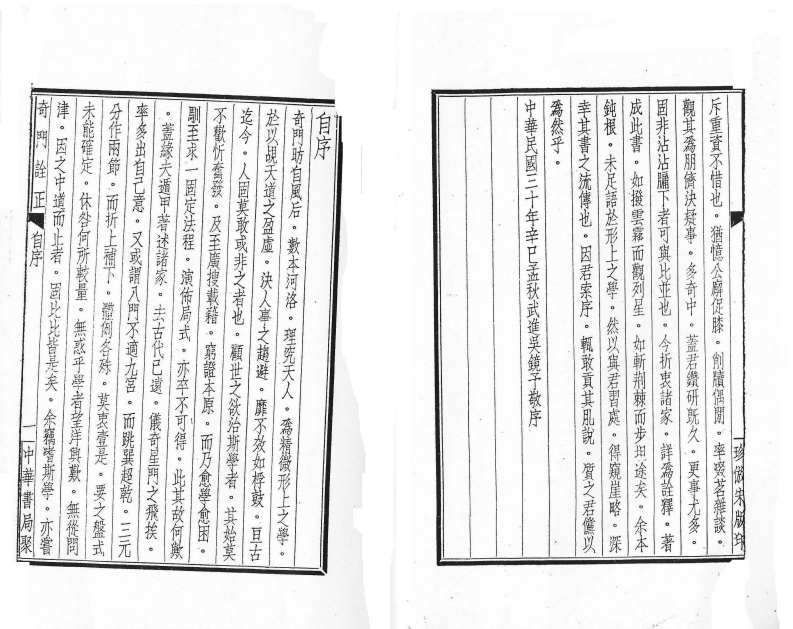 斥重資不惜也。猶憶公廨促膝。削牘偶閒。率啜茗雜談。
觀其爲朋儕決疑事。多奇中。蓋君鑽研旣久。更事尤多。
固非沾沾牖下者可與比並也。今折衷諸家。詳爲詮釋。著
成此書。如撥雲霧而觀列星。如斬荆棘而步坦途矣。余本
鈍根。未足語於形上之學。然以與君習處。得窺崖略。深
幸其書之流傳也。因君索序。輒敢貢其肊說。質之君儻以
爲然乎。
中華民國三十年辛巳孟秋武進吳鏡予敬序
珍倣宋版印
自序
奇門昉自風后。數本河洛。理究天人。爲精微形上之學。
於以覘天道之盈虛。決人事之趨避。靡不效如桴鼓。亘古
迄今。人固莫敢或非之者也。顧世之欲治斯學者。其始莫
不歡忻奮發。及至廣搜載籍。窮證本原。而乃愈學愈困。
馴至求一固定法程。演佈局式。亦卒不可得。此其故何歟
。蓋緣夫遁甲著述諸家。去古代已遠。儀奇星門之飛挨。
率多出自己意。又或謂八門不適九宮。而跳巽超乾。三元
分作兩節。而折上補下。體例各殊。莫衷壹是。要之盤式
未能確定。休咎何所較量。無惑乎學者望洋興歎。無從問
津。因之中道而止者。固比比皆是矣。余竊嗜斯學。亦嘗
奇門詮正
自序
一
中華書局聚